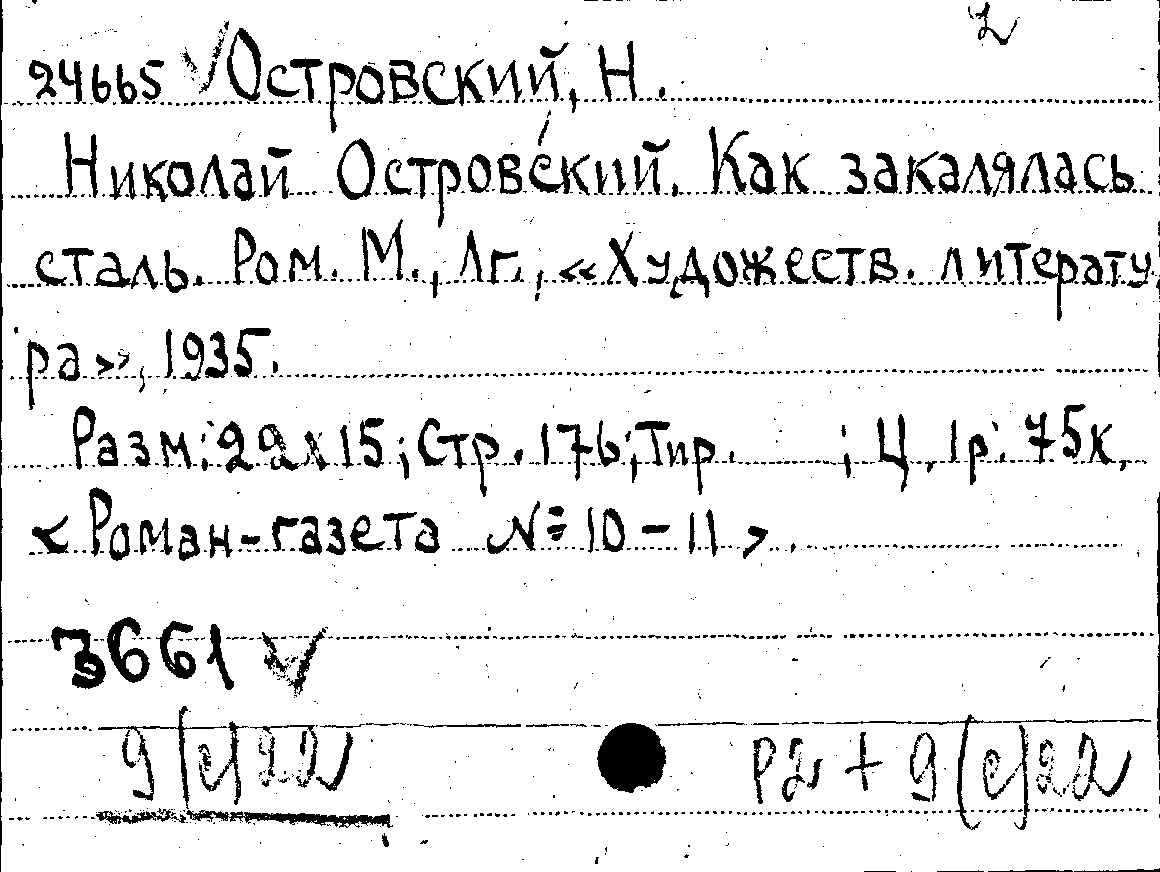 2
24665 √ Островский, Н.
Николай Островский. Как закалялась
сталь. Ром. М., Лг., «Художеств. литерату
ра», 1935.
Разм: 22х15; Стр. 176; Тир. ; Ц. 1р. 75к.
<Роман-газета №10-11>.
3661 √
9(с)22
Р2 + 9(с)22